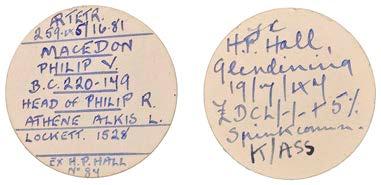 AR TETR.
259. /16.81
MACEDON
PHILIP V.
B.C. 220-179
HEAD OF PHILIP R.
ATHENE ALKIS L.
LOCKETT. 1528
EX H.P. HALL
Nº 84
H.P. Hall,
Glendining
19/7/
£DCL/-/-+5%
Spink comm.
K/ASS